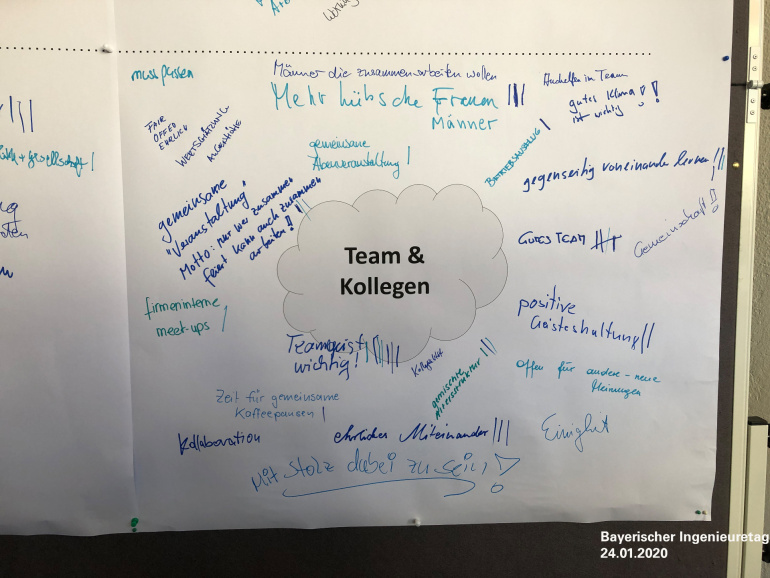 muss passen
Männer die zusammenarbeiten wollen
Mehr hübsche Frauen |||
Männer
Aushelfen im Team
gutes Klima !
ist wichtig !
FAIR
OFFEN
EHRLICH
WERTSCHÄTZUNG
gemeinsame
Abendveranstaltung |
BETRIEBSAUSFLUG |
gegenseitig voneinander lernen |||
gemeinsame
"Veranstaltung"
Motto: nur wer zusammen
feiert kann auch zusammen
arbeiten!!
GUTES TEAM
Gemeinschaft!!
Team &
Kollegen
firmeninterne
meet-ups |
positive
Geisteshaltung ||
Teamgeist
wichtig!
Kollegialität
gemischte
Altersstruktur |||
offen für andere - neue
Meinungen
Zeit für gemeinsame
Kaffeepausen |
Kollaboration
ehrliches Miteinander |||
Einigkeit
Mit Stolz dabei zu sein!
Bayerischer Ingenieuretag
24.01.2020